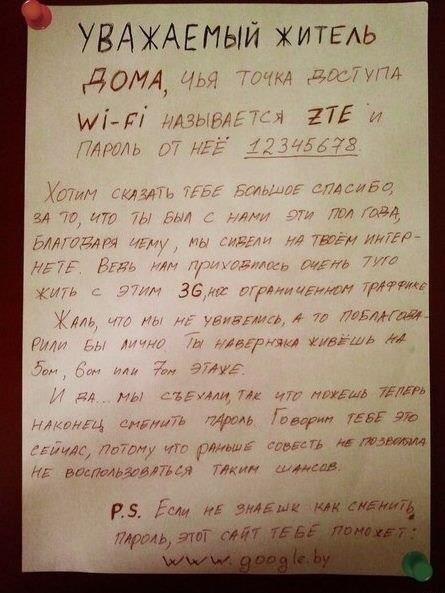 УВАЖАЕМЫЙ ЖИТЕЛЬ
ДОМА, ЧЬЯ ТОЧКА ДОСТУПА
Wi-Fi НАЗЫВАЕТСЯ ZTE И
ПАРОЛЬ ОТ НЕЁ 12345678.
ХОТИМ СКАЗАТЬ ТЕБЕ БОЛЬШОЕ СПАСИБО,
ЗА ТО, ЧТО ТЫ БЫЛ С НАМИ ЭТИ ПОЛ ГОДА,
БЛАГОДАРЯ ЧЕМУ, МЫ СИДЕЛИ НА ТВОЁМ ИНТЕР-
НЕТЕ. ВЕДЬ НАМ ПРИХОДИЛОСЬ ОЧЕНЬ ТУГО
ЖИТЬ С ЭТИМ 3G, ОГРАНИЧЕННОМ ТРАФФИКЕ
ЖАЛЬ, ЧТО МЫ НЕ УВИДЕЛИСЬ, А ТО ПОБЛАГОДА-
РИЛИ БЫ ЛИЧНО ТЫ НАВЕРНЯКА ЖИВЁШЬ НА
5ом, 6ом ИЛИ 7ом ЭТАЖЕ.
И ДА... МЫ СЪЕХАЛИ, ТАК ЧТО МОЖЕШЬ ТЕПЕРЬ
НАКОНЕЦ СМЕНИТЬ ПАРОЛЬ. ГОВОРИМ ТЕБЕ ЭТО
СЕЙЧАС, ПОТОМУ ЧТО РАНЬШЕ СОВЕСТЬ НЕ ПОЗВОЛЯЛА
НЕ ВОСПОЛЬЗОВАТЬСЯ ТАКИМ ШАНСОВ.
P.S. ЕСЛИ НЕ ЗНАЕШЬ КАК СМЕНИТЬ
ПАРОЛЬ, ЭТОТ САЙТ ТЕБЕ ПОМОЖЕТ:
www.google.by